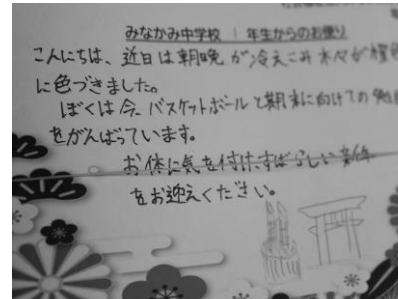 みなかみ中学校 1年生からのお便り
こんにちは、近日は朝晩が冷えこみ木々が
に色づきました。
ぼくは今、バスケットボールと期末に向けての勉
をがんばっています。
お体に気を付け、すばらしい新年
をお迎えください。